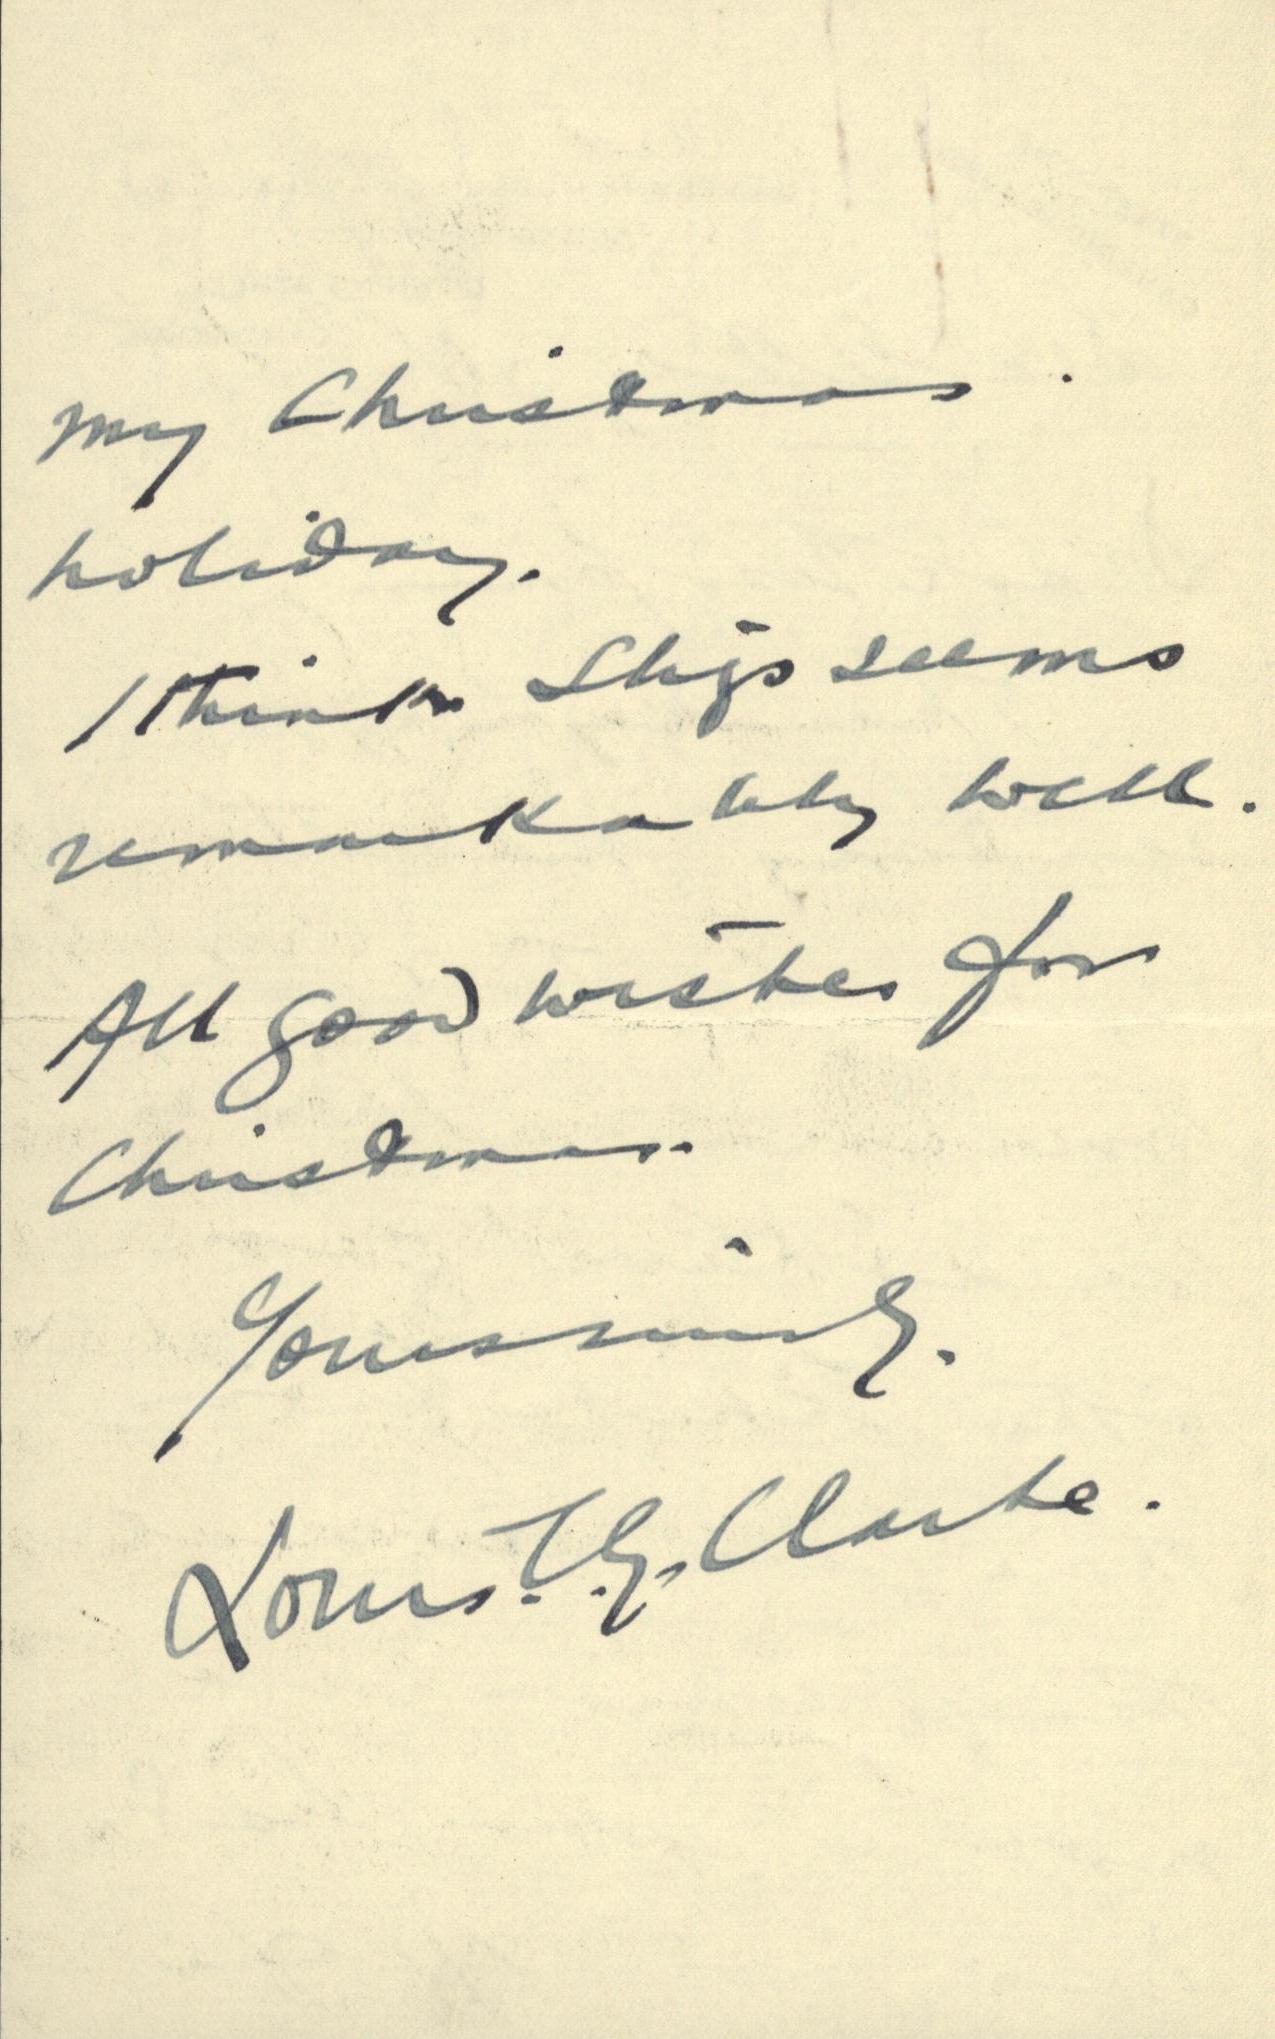 my Christmas
holiday.
I think seems
remarkably well.
All good wishes for
Christmas.
Yours sincly.
Louis. C. G. Clarke.